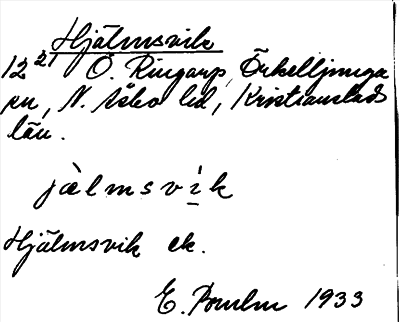 Hjälmsvik
12²¹ Ö. Ringarp, Örkelljunga
sn, N. Åsbo hd, Kristianstads
län.
jàlmsvi̱k
Hjälmsvik ek.
E. 1933